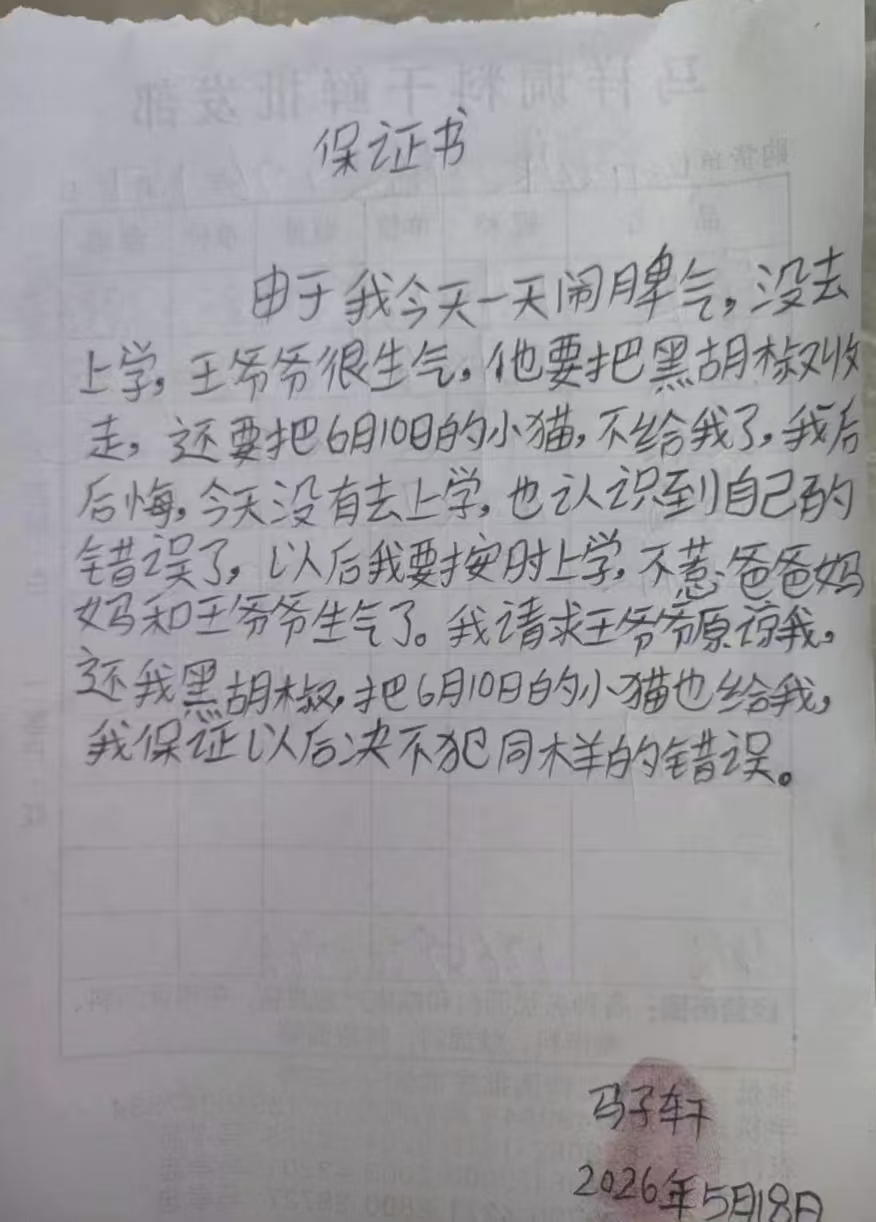 保证书
由于我今天一天闹脾气，没去
上学，王爷爷很生气，他要把黑胡椒收
走，还要把6月10日的小猫，不给我了，我后
后悔，今天没有去上学，也认识到自己的
错误了，以后我要按时上学，不惹爸爸妈
妈和王爷爷生气了。我请求王爷爷原谅我，
还我黑胡椒，把6月10日的小猫也给我，
我保证以后决不犯同样的错误。
马子轩
2026年5月18日